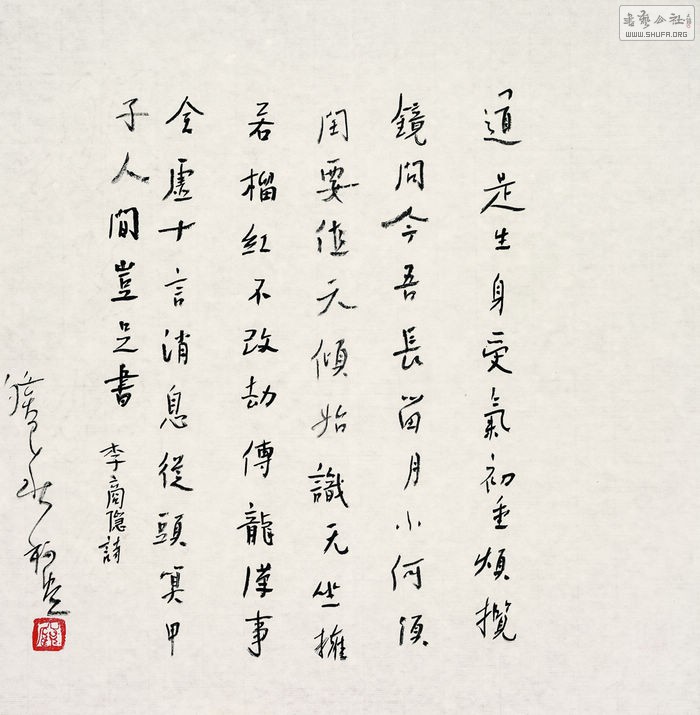 道是生身受氣初重煩攬
鏡問今吾長留月小何須
閏要值天傾始識无坐擁
若榴紅不改劫傳龍漢事
全虛十言消息從頭算甲
子人間豈足書
李商隐詩
癸巳秋
书艺公社
WWW.SHUFA.ORG